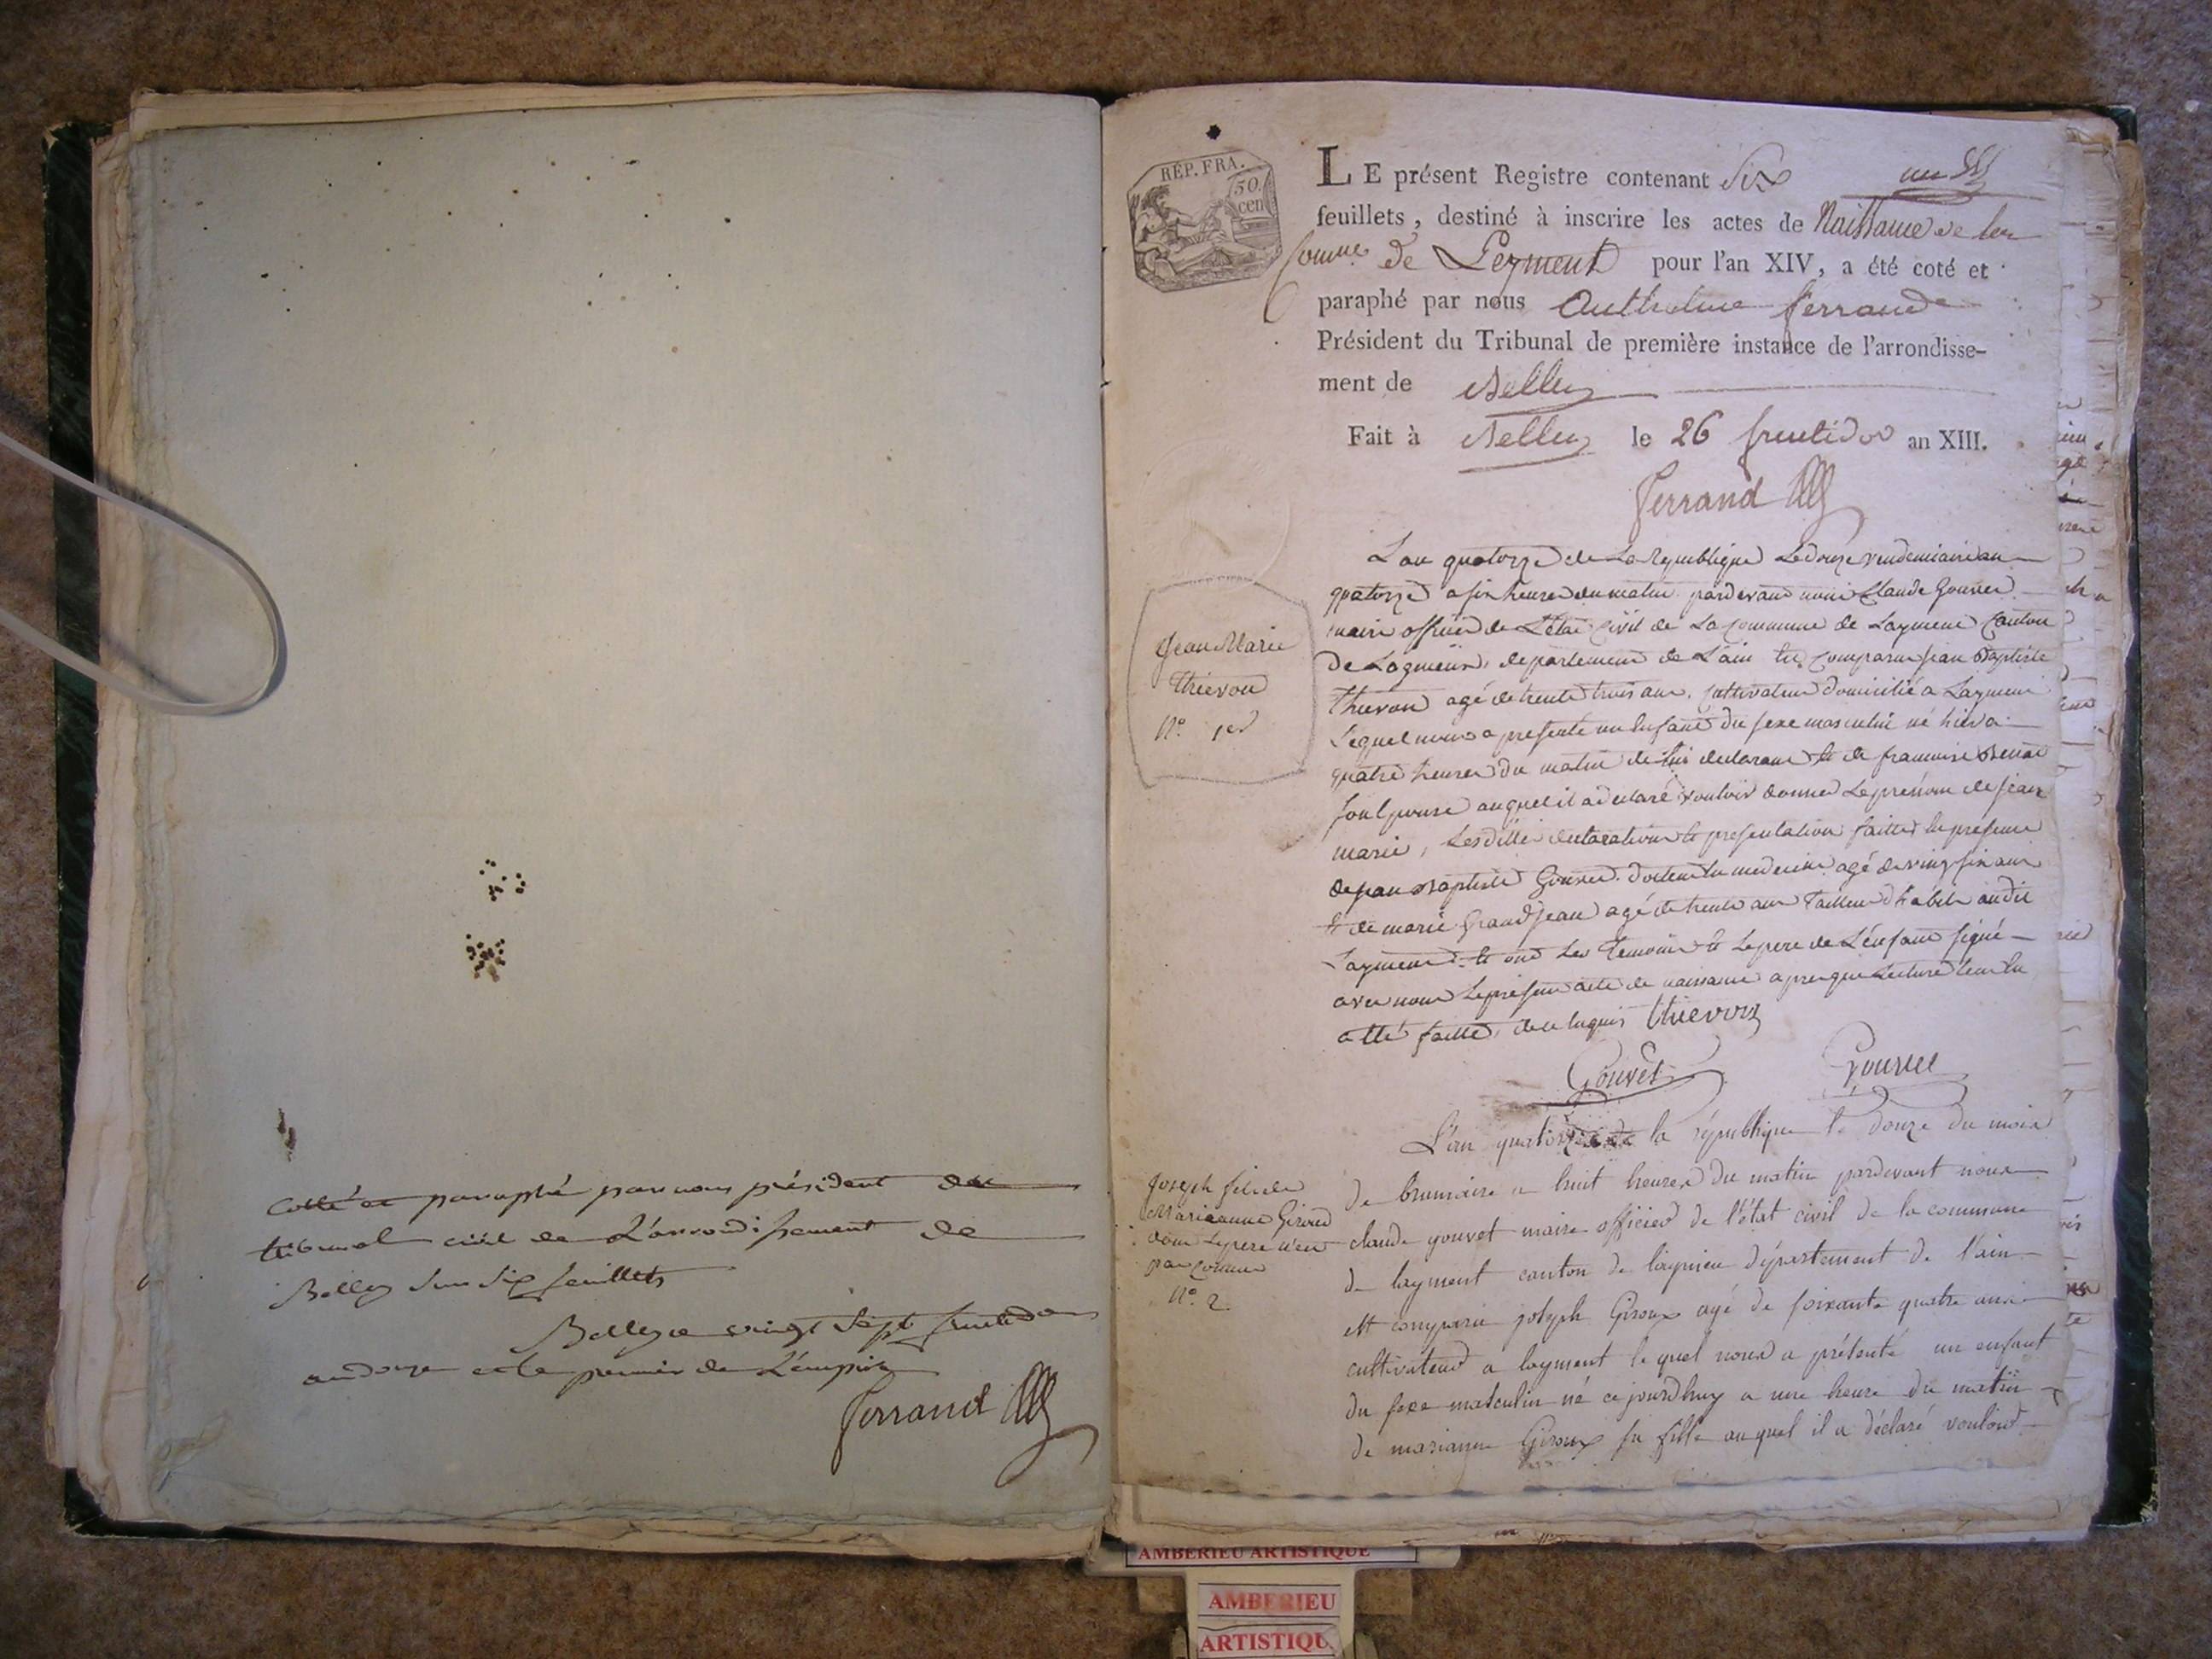 Cotté et paraphé par nous président du
tribunal civil de L'arrondissement de
Belley sur six feuillets
Belley ce vingt sept fructidor
an douze et le premier de L'empire
Ferrand
RÉP. FRA.
50.
cen
LE présent Registre contenant Six
feuillets, destiné à inscrire les actes de Naissance de la
Comne de Leyment pour l'an XIV, a été coté et
paraphé par nous Anthelme ferrand
Président du Tribunal de première instance de l'arrondisse-
ment de Belley
Fait à Belley le 26 fructidor an XIII.
Ferrand
Jean Marie
Thievon
N.° 1er
L'an quatorze de La Republique Le douze vendemiaire an
quatorze a six heures du matin pardevant nous Claude Gouvet
maire officier de L'état Civil de La Commune de Layment Canton
De Lagnieu, departement de L'ain Est Comparu jean Baptiste
Thievon agé de trente trois ans, Cultivateur domicilié a Layment
Lequel nous a presenté un Enfant du sexe masculin né hier a
quatre heures du matin de lui declarant Et de francoise
son Epouse auquel il a déclaré vouloir donner Le prénom de jean
marie, Lesdittes declaration Et presentation faittes En presence
de jean Baptiste Gouvet docteur En medecine agé de vingt six ans
Et de marie Grandjean agé de trente ans Tailleur d'habits audit
Layment Et ont Les Temoins Et Le pere de L'enfant signé
avec nous Le présent acte de naissance apres que Lecture leur En
a Eté faitte, de ce Enquis Thievon
Gouvet Gouvet
Joseph fils de
Marieanne Giroud
dont Le pere n'est
pas Connu
N.° 2.
L'an quatorze de la république le douze du mois
de brumaire a huit heures du matin pardevant nous
claude gouvet maire officier de l'état civil de la commune
de layment canton de lagnieu département de l'ain
est comparu joseph Giroux agé de soixante quatre ans
cultivateur a layment lequel nous a présenté un enfant
du sexe masculin né ce jourdhuy a une heure du matin
de marianne Giroux sa fille auquel il a déclaré vouloir
AMBERIEU ARTISTIQUE
AMBERIEU
ARTISTIQU